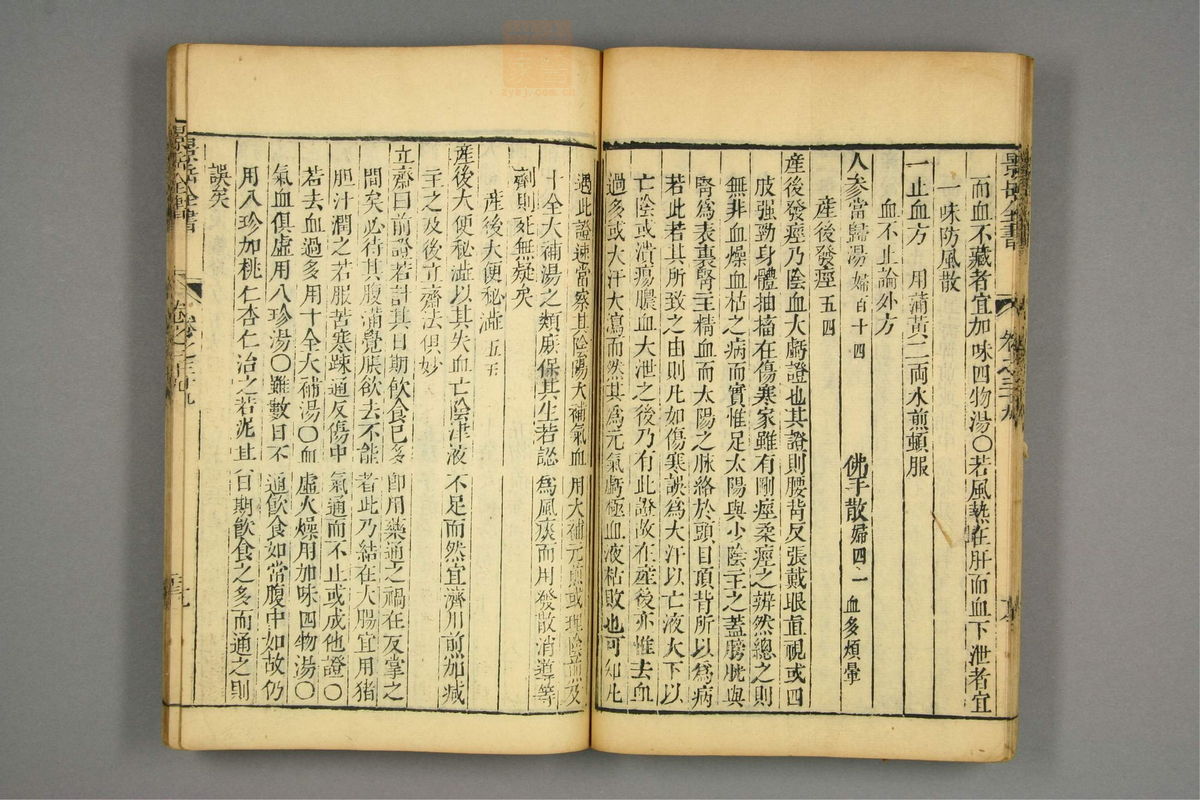 而血不藏者宜加味四物湯〇若風熱在肝而血下泄者宜
一味防風散
一止血方　用蒲黃二兩水煎頓服
血不止論外方
人參當歸湯 婦百十四　佛手散 婦四一 血多煩暈
產後發痙 五四
產後發痙乃陰血大虧證也其證則腰背反張戴眼直視或四
肢强勁身體抽搐在傷寒家雖有剛痙柔痙之辨然總之則
無非血燥血枯之病而實惟足太陽與少陰主之蓋膀胱與
腎爲表裏腎主精血而太陽之脉絡於頭目項背所以爲病
若此若其所致之由則凡如傷寒誤爲大汗以亡液大下以
亡陰或潰瘍膿血大泄之後乃有此證故在產後亦惟去血
過多或大汗大瀉而然其爲元氣虧極血液枯敗也可知凡
遇此證速當察其陰陽大補氣血用大補元煎或理陰煎及
十全大補湯之類庶保其生若認爲風痰而用發散消導等
劑則死無疑矣
產後大便秘澁 五五
產後大便秘澁以其失血亡陰津液不足而然宜濟川煎加減
主之及後立齋法俱妙
立齋曰前證若計其日期飲食已多即用藥通之禍在反掌之
間矣必待其腹滿覺脹欲去不能者此乃結在大腸宜用猪
胆汁潤之若服苦寒疎通反傷中氣通而不止或成他證〇
若去血過多用十全大補湯〇血虛火燥用加味四物湯〇
氣血俱虛用八珍湯〇雖數日不通飲食如常腹中如故仍
用八珍加桃仁杏仁治之若泥其日期飲食之多而通之則
誤矣
景岳全書
卷之三十九